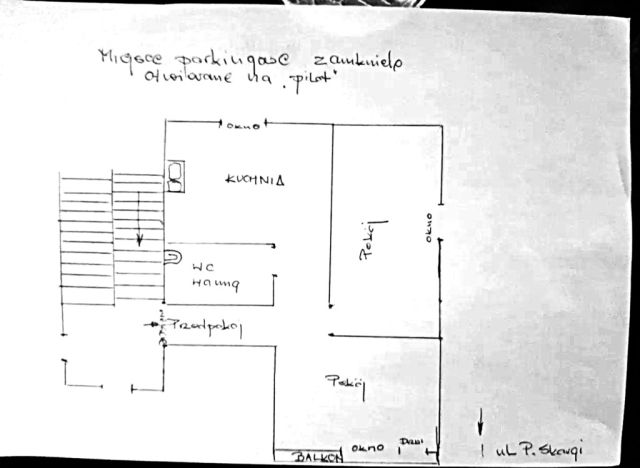 Miejsce parkingowe zamknięte
otwierane na "pilot"
OKNO
KUCHNIA
Pokój
OKNO
WC
Wanną
Przedpokój
Pokój
OKNO
Drzwi
BALKON
ul. P. Skargi